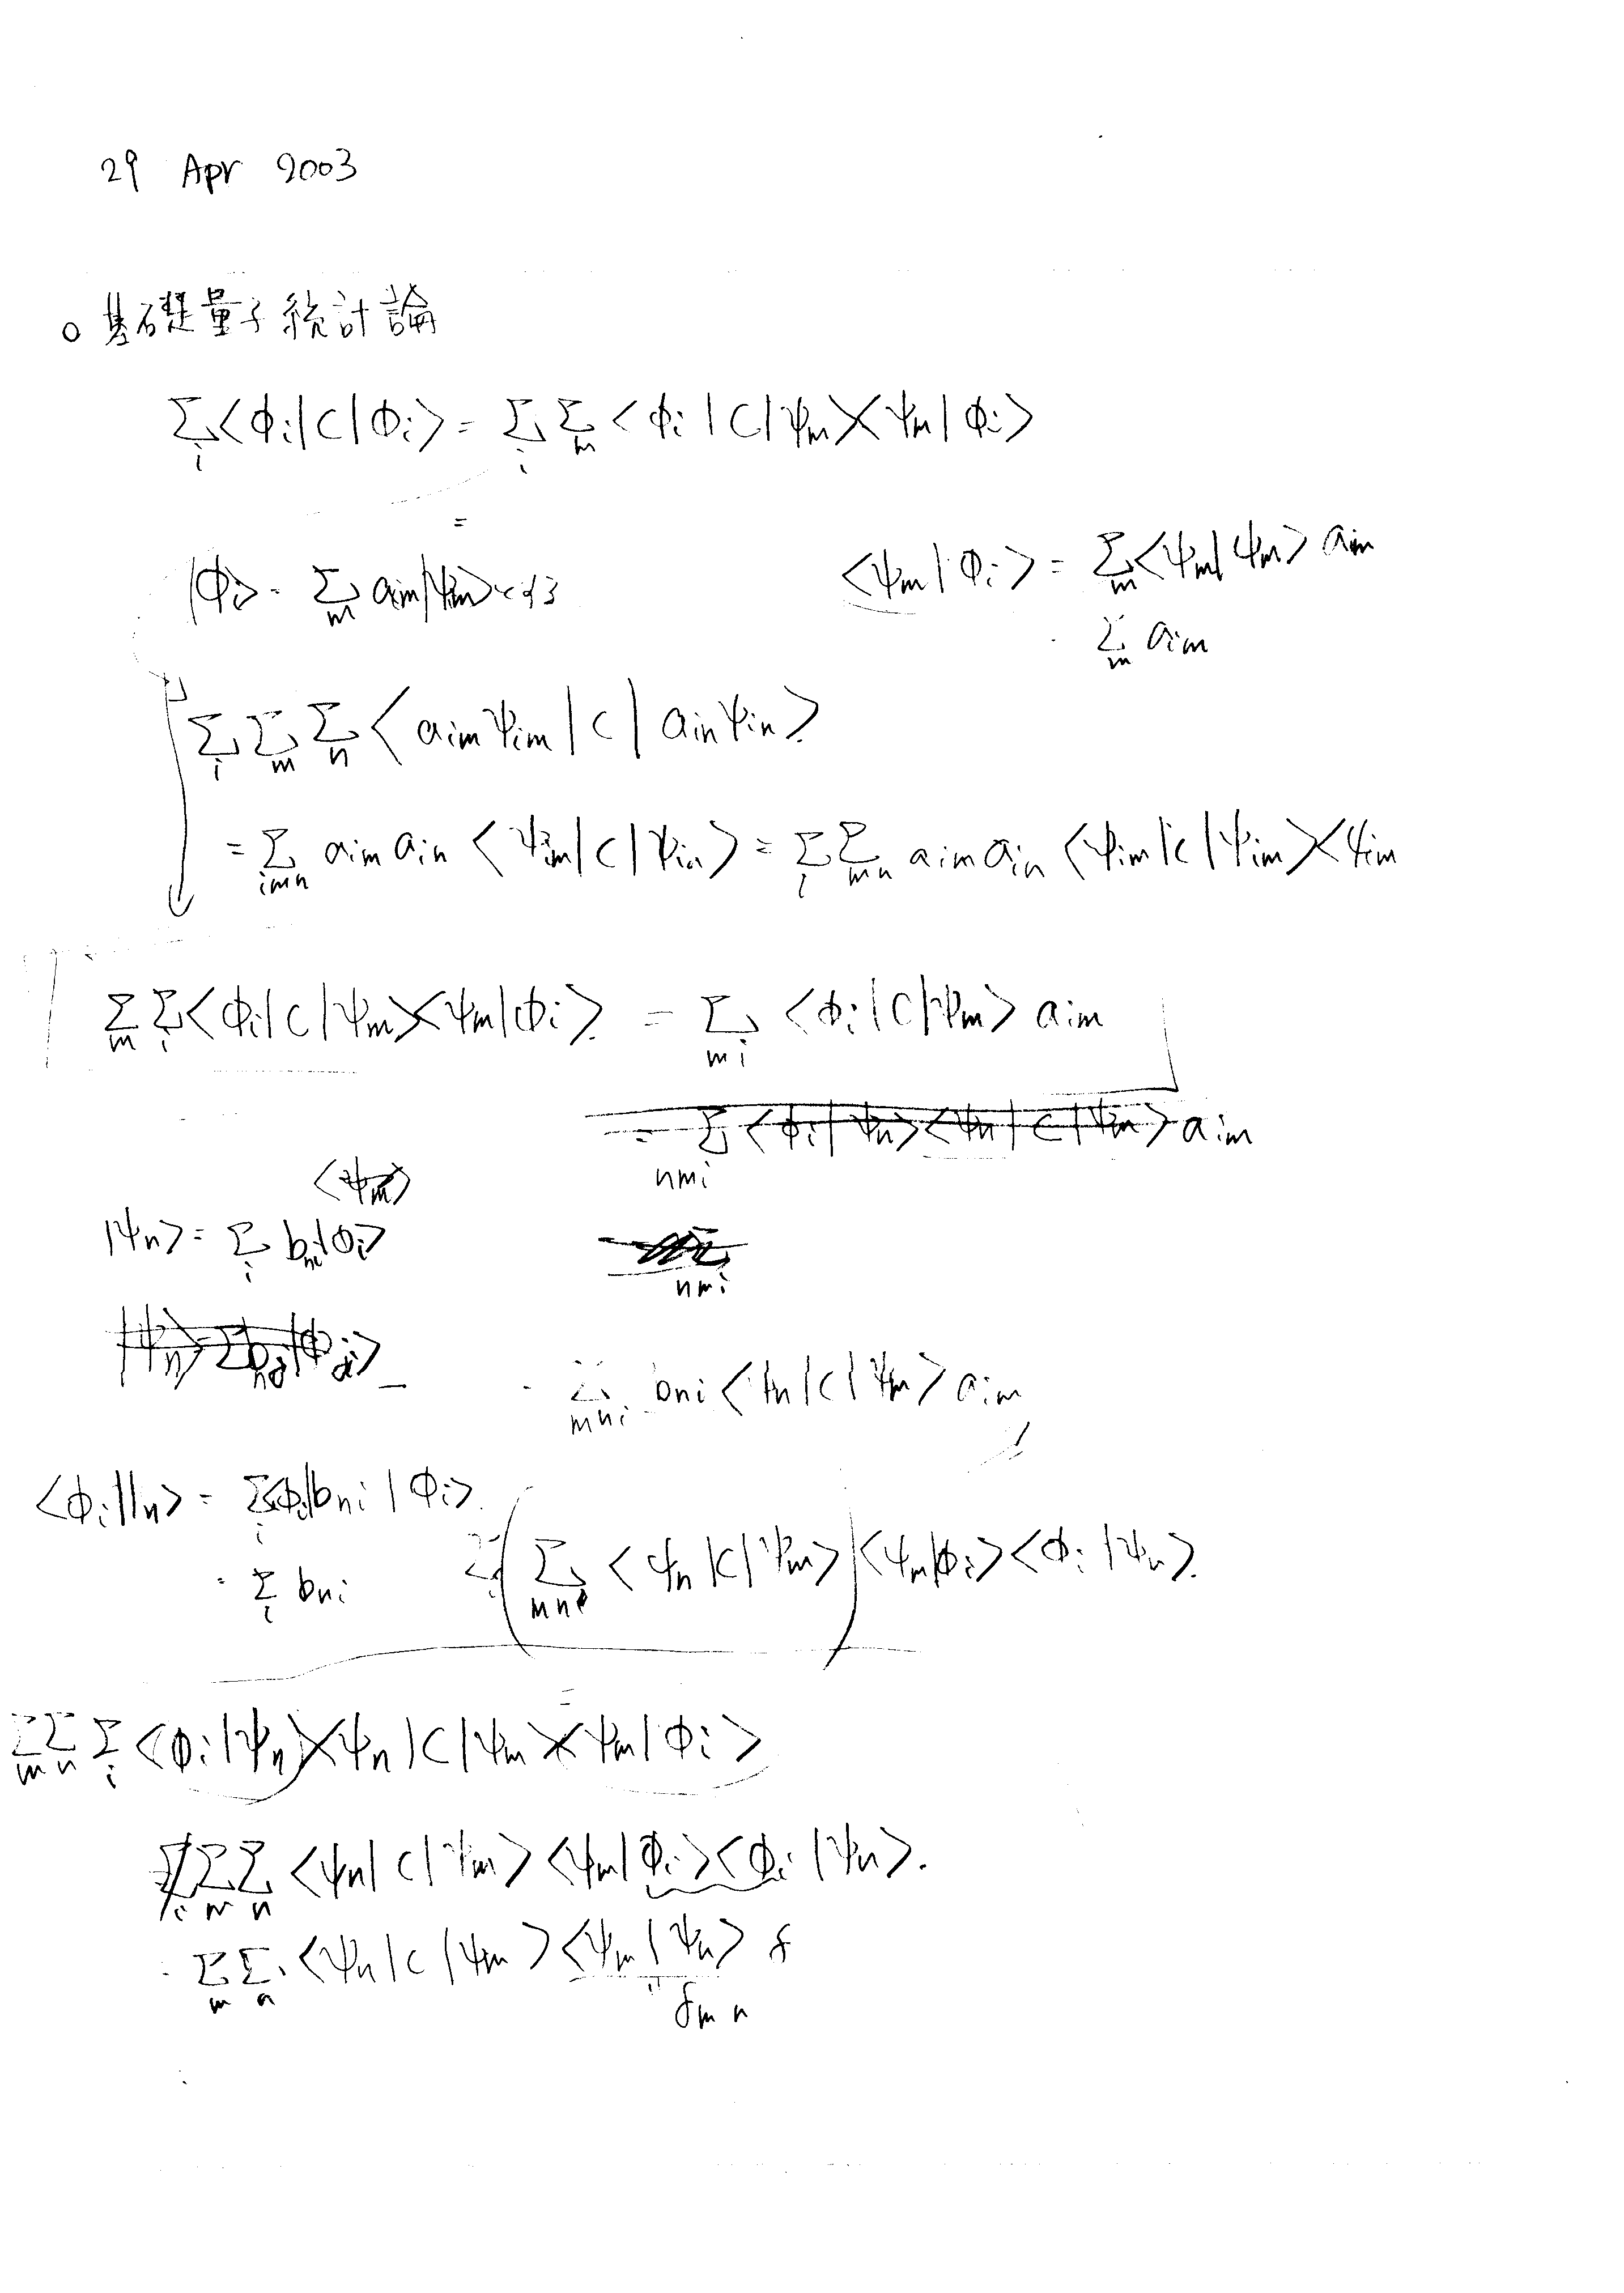 29 Apr 2003
○ 基礎量子統計論
Σ_i <Φi|C|Φi> = Σ_i Σ_m <Φi|C|ψm><ψm|Φi>
=
|Φi> = Σ_m aim|ψm> とする
<ψm|Φi> = Σ_m <ψm|ψm> aim
Σ_m aim
Σ_i Σ_m Σ_n <aim ψim|C|ain ψin>
= Σ_imn aim ain <ψim|C|ψin> = Σ_i Σ_mn aim ain <ψim|C|ψim><ψim
Σ_m Σ_i <Φi|C|ψm><ψm|Φi> = Σ_mi <Φi|C|ψm> aim
= Σ_nmi <Φi|ψn><ψn|C|ψm> aim
<ψm>
|ψn> = Σ_i bni|Φi>
nmi
= Σ_mni bni <ψn|C|ψm> aim
<Φi|ψn> = Σ_i <Φi|bni|Φi>
= Σ_i bni
Σ_i ( Σ_mn <ψn|C|ψm> ) <ψm|Φi><Φi|ψn>
Σ_m Σ_n Σ_i <Φi|ψn><ψn|C|ψm><ψm|Φi>
Σ_i Σ_m Σ_n <ψn|C|ψm> <ψm|Φi><Φi|ψn>.
= Σ_m Σ_n <ψn|C|ψm> <ψm|ψn> δ
δmn